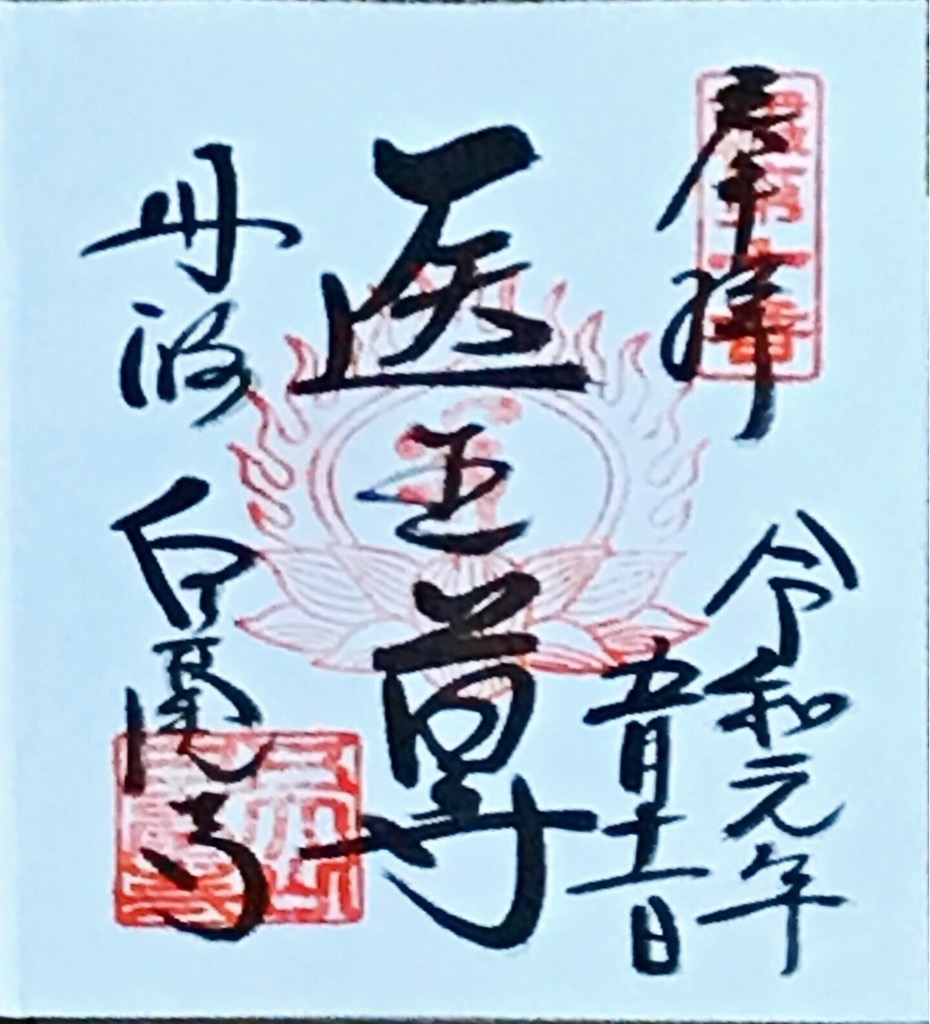 奉拝
令和元年
五月十一日
医王尊
丹波
白毫寺